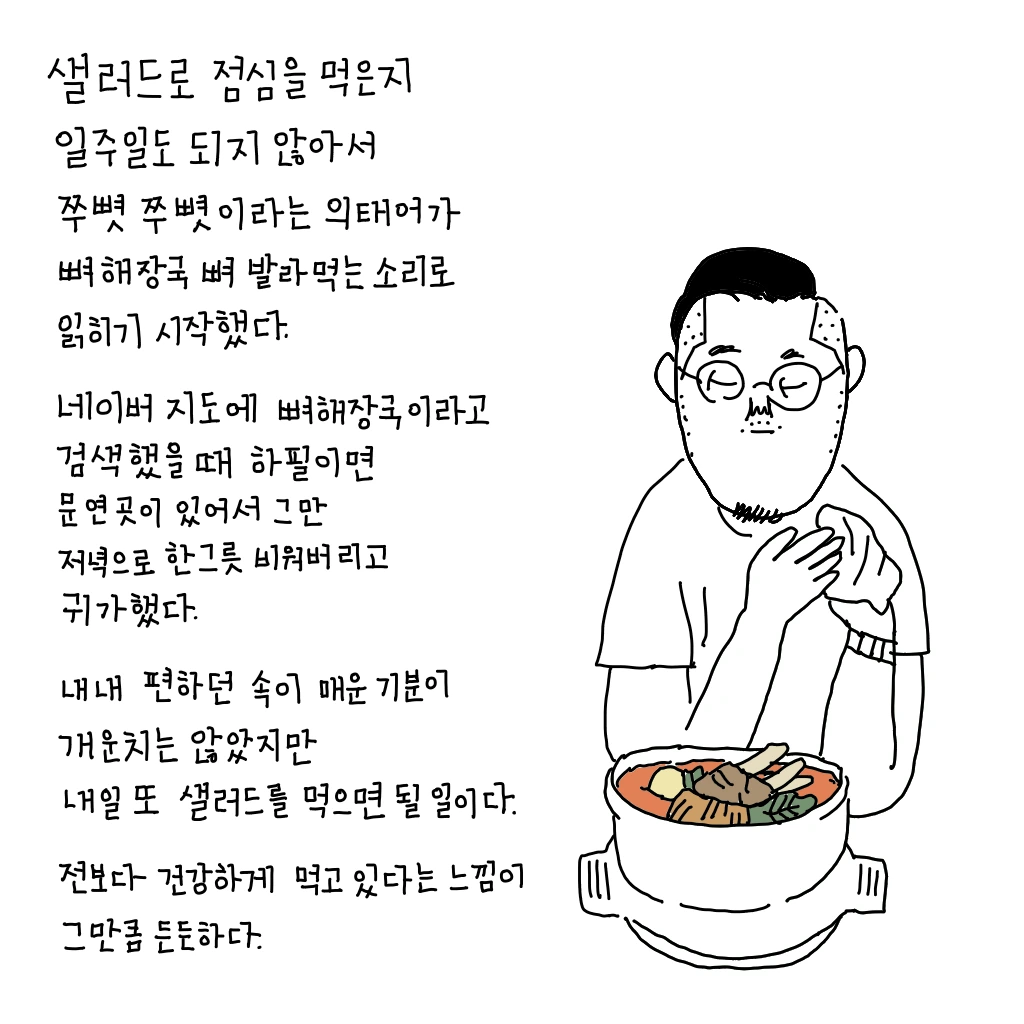 샐러드로 점심을 먹은지
일주일도 되지 않아서
쭈뼛 쭈뼛이라는 의태어가
뼈해장국 뼈 발라먹는 소리로
읽히기 시작했다.
네이버 지도에 뼈해장국이라고
검색했을 때 하필이면
문연곳이 있어서 그만
저녁으로 한그릇 비워버리고
귀가했다.
내내 편하던 속이 매운 기분이
개운치는 않았지만
내일 또 샐러드를 먹으면 될 일이다.
전보다 건강하게 먹고 있다는 느낌이
그만큼 든든하다.